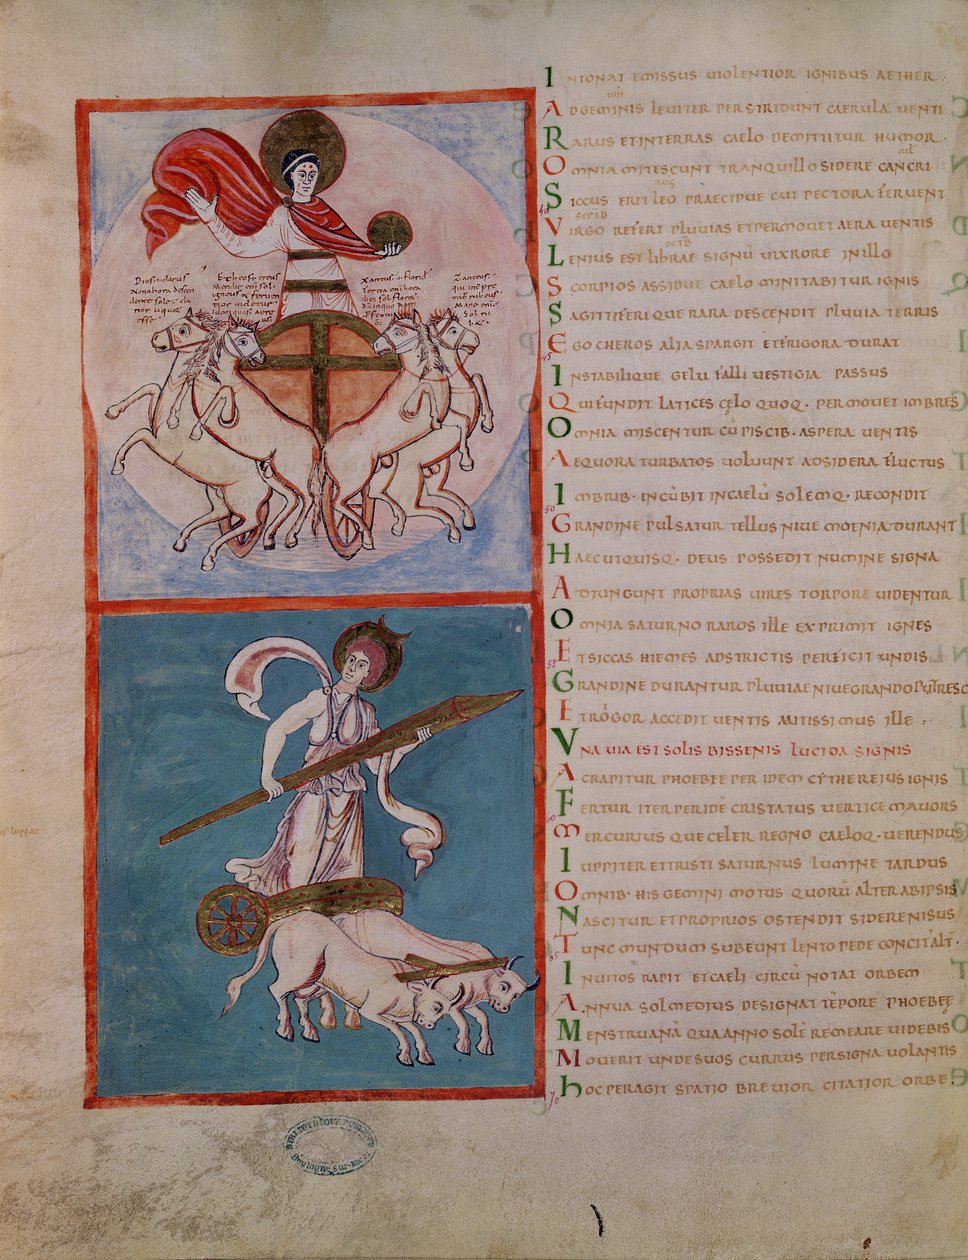 Diosin clarus
Nonahora descen
dente sole. cla
tior
esse
Etheos
Meridie eni sol
igneus & ferven
tior
Xantus. i. florid
Tertia eni hora
diei sol flore
Zanteos
qui interpre
Mane eni
Sol
INTONAT EMISSUS VIOLENTIOR IGNIBUS AETHER.
ADGEMINIS LEVITER PERSTRIDUNT CAERULA VENTI.
RARUS ETINTERRAS CAELO DEMITITUR HUMOR.
OMNIA MITESCUNT TRANQUILLO SIDERE CANCRI
SICCUS ERIT LEO PRAECIPUE CUI PECTORA FERVENT
40
SEPTB
VIRGO REFERT PLUVIAS ETPERMOVET AERA VENTIS
OCTB
LENIUS EST LIBRAE SIGNŪ VIXRORE INILLO
SCORPIOS ASSIDUE CAELO MINITABITUR IGNIS
SAGITTIFERI QUE RARA DESCENDIT PLUVIA TERRIS
EGOCHEROS ALIA SPARGIT ETFRIGORA DURAT
45
INSTABILIQUE GELU FALLI VESTIGIA PASSUS
QUIFUNDIT LATICES CĘLO QUOQ. PERMOVET IMBRES
OMNIA MISCENTUR CŪ PISCIB. ASPERA VENTIS
AEQUORA TURBATOS VOLVUNT ADSIDERA FLUCTUS
IMBRIB. INCŪBIT INCAELŪ SOLEMQ. RECONDIT
50
GRANDINE PULSATUR TELLUS NIVE MOENIA DURANT
HAEC UTQUISQ. DEUS POSSEDIT NUMINE SIGNA
ADIUNGUNT PROPRIAS VIRES TORPORE VIDENTUR
OMNIA SATURNO RAROS ILLE EXPRIMIT IGNES
ETSICCAS HIEMES ADSTRICTIS PERFICIT UNDIS
55
GRANDINE DURANTUR PLUVIAE NIVEGRANDO PUTRESC
ET RŌGOR ACCEDIT VENTIS MITISSIMUS ILLE.
VNA VIA EST SOLIS BISSENIS LUCIDA SIGNIS
ACRAPITUR PHOEBĘE PER IDEM CYTHEREIUS IGNIS
FERTUR ITER PERIDĒ CRISTATUS VERTICE MAVORS
60
MERCURIUS QUE CELER REGNO CAELOQ. VERENDUS
IUPPITER ET TRISTI SATURNUS LUMINE TARDUS
OMNIB. HIS GEMINI MOTUS QUORŪ ALTER ABIPSIS
NASCITUR ETPROPRIOS OSTENDIT SIDERE NISUS
TUNC MUNDUM SUBEUNT LENTO PEDE CONCITALT.
65
INVITOS RAPIT ETCAELI CIRCŪ NOTAT ORBEM
ANNUA SOL MEDIUS DESIGNAT TĒPORE PHOEBĘE
MENSTRUANĀ QUA ANNO SOLĒ REMEARE VIDEBIS
MOVERIT UNDE SUOS CURRUS PER SIGNA VOLANTIS
HOC PERAGIT SPATIO BREVIOR CITATIOR ORBE.
70
BIBLIOTHÈQUE PUBLIQUE
Boulogne-sur-mer